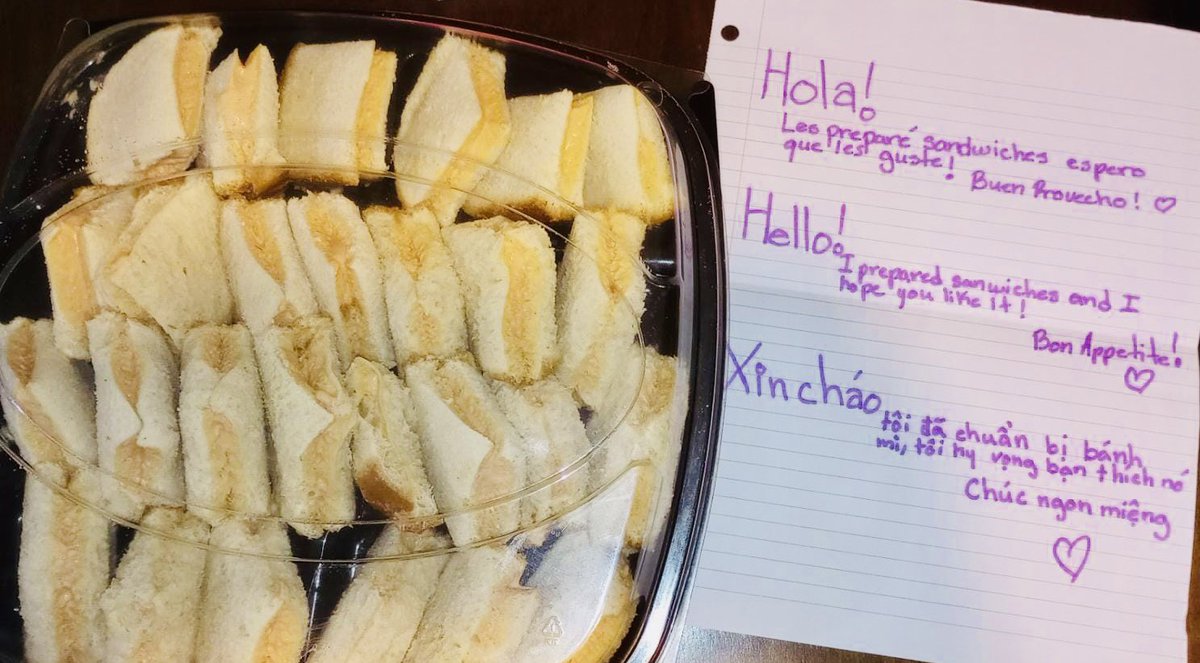 Hola!
Les preparé sandwiches espero
que les guste! Buen Provecho!
Hello!
I prepared sanwiches and I
hope you like it!
Bon Appetite!
Xin cháo
tôi đã chuẩn bị bánh
mì, tôi hy vọng bạn thich nó
Chúc ngon miệng